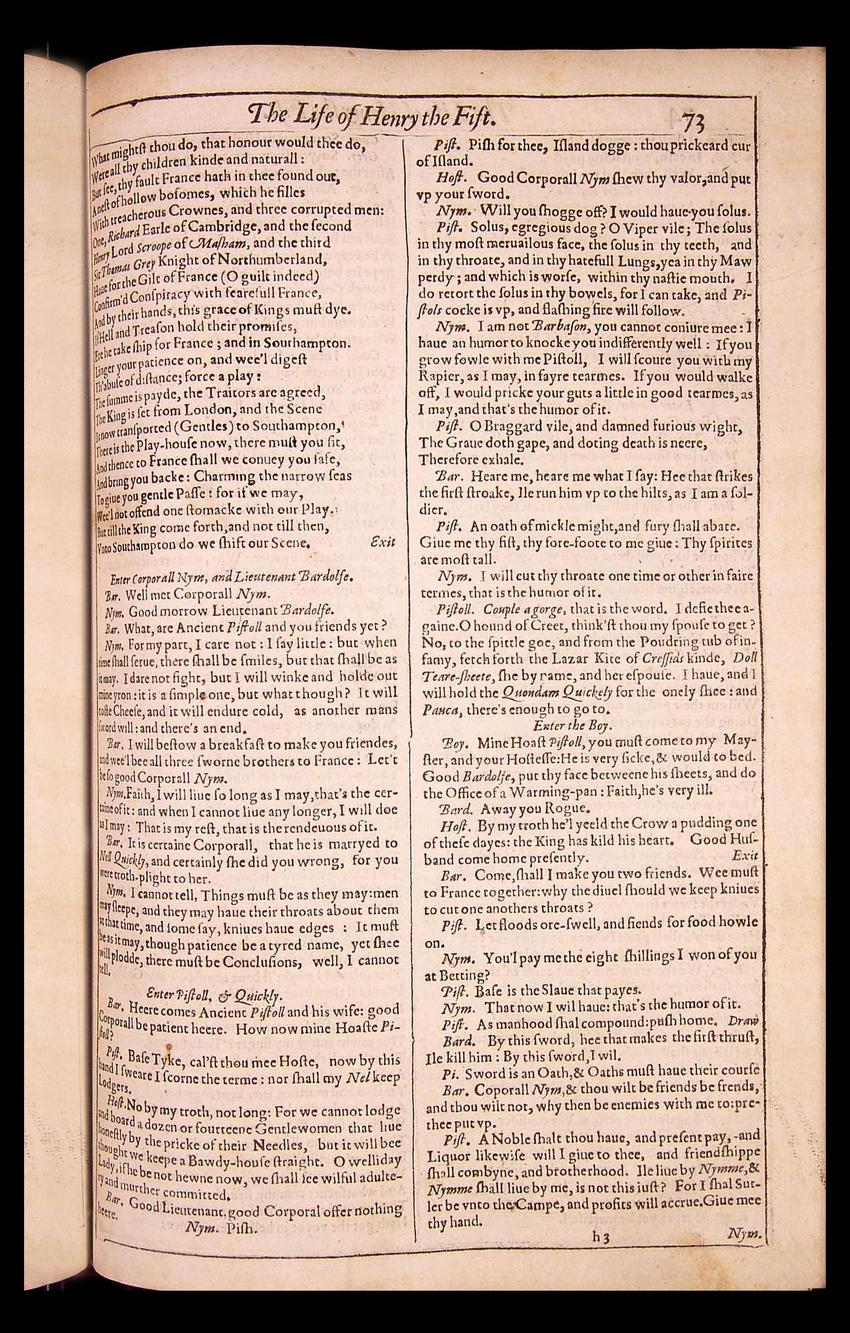 The Life of Henry the Fift. 73
What mightſt thou do, that honour would thee do,
Were all thy children kinde and naturall:
But ſee, thy fault France hath in thee found out,
A neſt of hollow boſomes, which he filles
With treacherous Crownes, and three corrupted men:
One, Richard Earle of Cambridge, and the ſecond
Henry Lord Scroope of Maſham, and the third
Sir Thomas Grey Knight of Northumberland,
Haue for the Gilt of France (O guilt indeed)
Confirm'd Conſpiracy with fearefull France,
And by their hands, this grace of Kings muſt dye.
If Hell and Treaſon hold their promiſes,
Ere he take ſhip for France; and in Southampton.
Linger your patience on, and wee'l digeſt
Th'abuſe of diſtance; force a play:
The ſumme is payde, the Traitors are agreed,
The King is ſet from London, and the Scene
Is now tranſported (Gentles) to Southampton,
There is the Play-houſe now, there muſt you ſit,
And thence to France ſhall we conuey you ſafe,
And bring you backe: Charming the narrow ſeas
To giue you gentle Paſſe: for if we may,
Wee'l not offend one ſtomacke with our Play.
But till the King come forth, and not till then,
Vnto Southampton do we ſhift our Scene. Exit
Enter Corporall Nym, and Lieutenant Bardolfe.
Bar. Well met Corporall Nym.
Nym. Good morrow Lieutenant Bardolfe.
Bar. What, are Ancient Piſtoll and you friends yet?
Nym. For my part, I care not: I ſay little: but when
time ſhall ſerue, there ſhall be ſmiles, but that ſhall be as
it may. I dare not fight, but I will winke and holde out
mine yron: it is a ſimple one, but what though? It will
toſte Cheeſe, and it will endure cold, as another mans
ſword will: and there's an end.
Bar. I will beſtow a breakfaſt to make you friendes,
and wee'l bee all three ſworne brothers to France: Let't
be ſo good Corporall Nym.
Nym. Faith, I will liue ſo long as I may, that's the cer-
taine of it: and when I cannot liue any longer, I will doe
as I may: That is my reſt, that is the rendeuous of it.
Bar. It is certaine Corporall, that he is marryed to
Nell Quickly, and certainly ſhe did you wrong, for you
were troth-plight to her.
Nym. I cannot tell, Things muſt be as they may: men
may ſleepe, and they may haue their throats about them
at that time, and ſome ſay, kniues haue edges: It muſt
be as it may, though patience be a tyred name, yet ſhee
will plodde, there muſt be Concluſions, well, I cannot
tell.
Enter Piſtoll, & Quickly.
Bar. Heere comes Ancient Piſtoll and his wife: good
Corporall be patient heere. How now mine Hoaſte Pi-
ſtoll?
Piſt. Baſe Tyke, cal'ſt thou mee Hoſte, now by this
hand I ſweare I ſcorne the terme: nor ſhall my Nel keep
Lodgers.
Hoſt. No by my troth, not long: For we cannot lodge
and board a dozen or fourteene Gentlewomen that liue
honeſtly by the pricke of their Needles, but it will bee
thought we keepe a Bawdy-houſe ſtraight. O welliday
Lady, if he be not hewne now, we ſhall ſee wilful adulte-
ry and murther committed.
Bar. Good Lieutenant, good Corporal offer nothing
heere.
Nym. Piſh.
Piſt. Piſh for thee, Iſland dogge: thou prickeard cur
of Iſland.
Hoſt. Good Corporall Nym ſhew thy valor, and put
vp your ſword.
Nym. Will you ſhogge off? I would haue you ſolus.
Piſt. Solus, egregious dog? O Viper vile; The ſolus
in thy moſt meruailous face, the ſolus in thy teeth, and
in thy throate, and in thy hatefull Lungs, yea in thy Maw
perdy; and which is worſe, within thy naſtie mouth. I
do retort the ſolus in thy bowels, for I can take, and Pi-
ſtols cocke is vp, and flaſhing fire will follow.
Nym. I am not Barbaſon, you cannot coniure mee: I
haue an humor to knocke you indifferently well: If you
grow fowle with me Piſtoll, I will ſcoure you with my
Rapier, as I may, in fayre tearmes. If you would walke
off, I would pricke your guts a little in good tearmes, as
I may, and that's the humor of it.
Piſt. O Braggard vile, and damned furious wight,
The Graue doth gape, and doting death is neere,
Therefore exhale.
Bar. Heare me, heare me what I ſay: Hee that ſtrikes
the firſt ſtroake, Ile run him vp to the hilts, as I am a ſol-
dier.
Piſt. An oath of mickle might, and fury ſhall abate.
Giue me thy fiſt, thy fore-foote to me giue: Thy ſpirites
are moſt tall.
Nym. I will cut thy throate one time or other in faire
termes, that is the humor of it.
Piſtoll. Couple a gorge, that is the word. I defie thee a-
gaine. O hound of Creet, think'ſt thou my ſpouſe to get?
No, to the ſpittle goe, and from the Poudring tub of in-
famy, fetch forth the Lazar Kite of Creſſids kinde, Doll
Teare-ſheete, ſhe by name, and her eſpouſe. I haue, and I
will hold the Quondam Quickely for the onely ſhee: and
Pauca, there's enough to go to.
Enter the Boy.
Boy. Mine Hoaſt Piſtoll, you muſt come to my May-
ſter, and your Hoſteſſe: He is very ſicke, & would to bed.
Good Bardolfe, put thy face betweene his ſheets, and do
the Office of a Warming-pan: Faith, he's very ill.
Bard. Away you Rogue.
Hoſt. By my troth he'l yeeld the Crow a pudding one
of theſe dayes: the King has kild his heart. Good Huſ-
band come home preſently. Exit
Bar. Come, ſhall I make you two friends. Wee muſt
to France together: why the diuel ſhould we keep kniues
to cut one anothers throats?
Piſt. Let floods ore-ſwell, and fiends for food howle
on.
Nym. You'l pay me the eight ſhillings I won of you
at Betting?
Piſt. Baſe is the Slaue that payes.
Nym. That now I wil haue: that's the humor of it.
Piſt. As manhood ſhal compound: puſh home. Draw
Bard. By this ſword, hee that makes the firſt thruſt,
Ile kill him: By this ſword, I wil.
Pi. Sword is an Oath, & Oaths muſt haue their courſe
Bar. Coporall Nym, & thou wilt be friends be frends,
and thou wilt not, why then be enemies with me to: pre-
thee put vp.
Piſt. A Noble ſhalt thou haue, and preſent pay, and
Liquor likewiſe will I giue to thee, and friendſhippe
ſhall combyne, and brotherhood. Ile liue by Nymme, &
Nymme ſhall liue by me, is not this iuſt? For I ſhal Sut-
ler be vnto the Campe, and profits will accrue. Giue mee
thy hand.
h3 Nym.